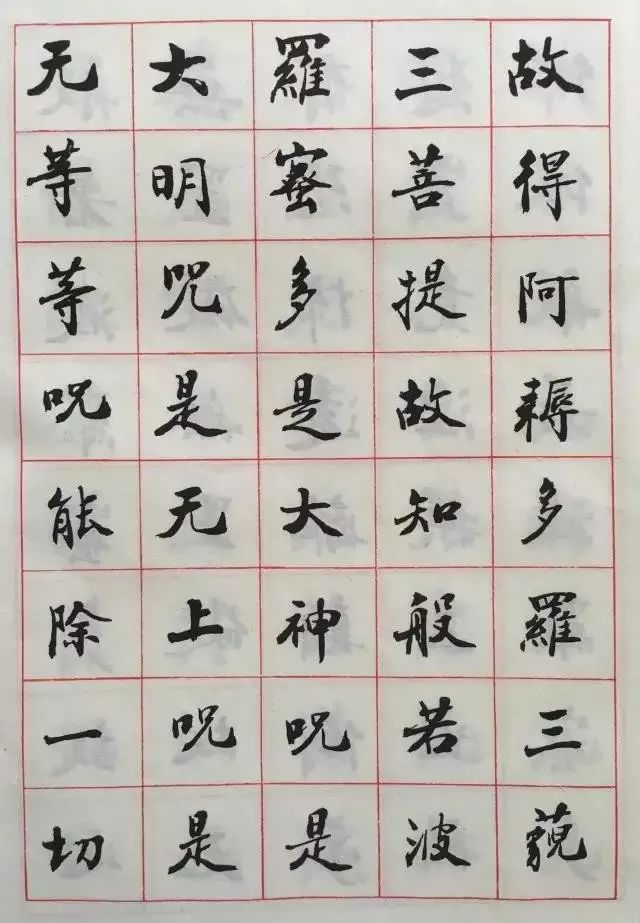 故得阿耨多羅三藐
三菩提故知般若波
羅蜜多是大神咒是
大明咒是无上咒是
无等等咒能除一切